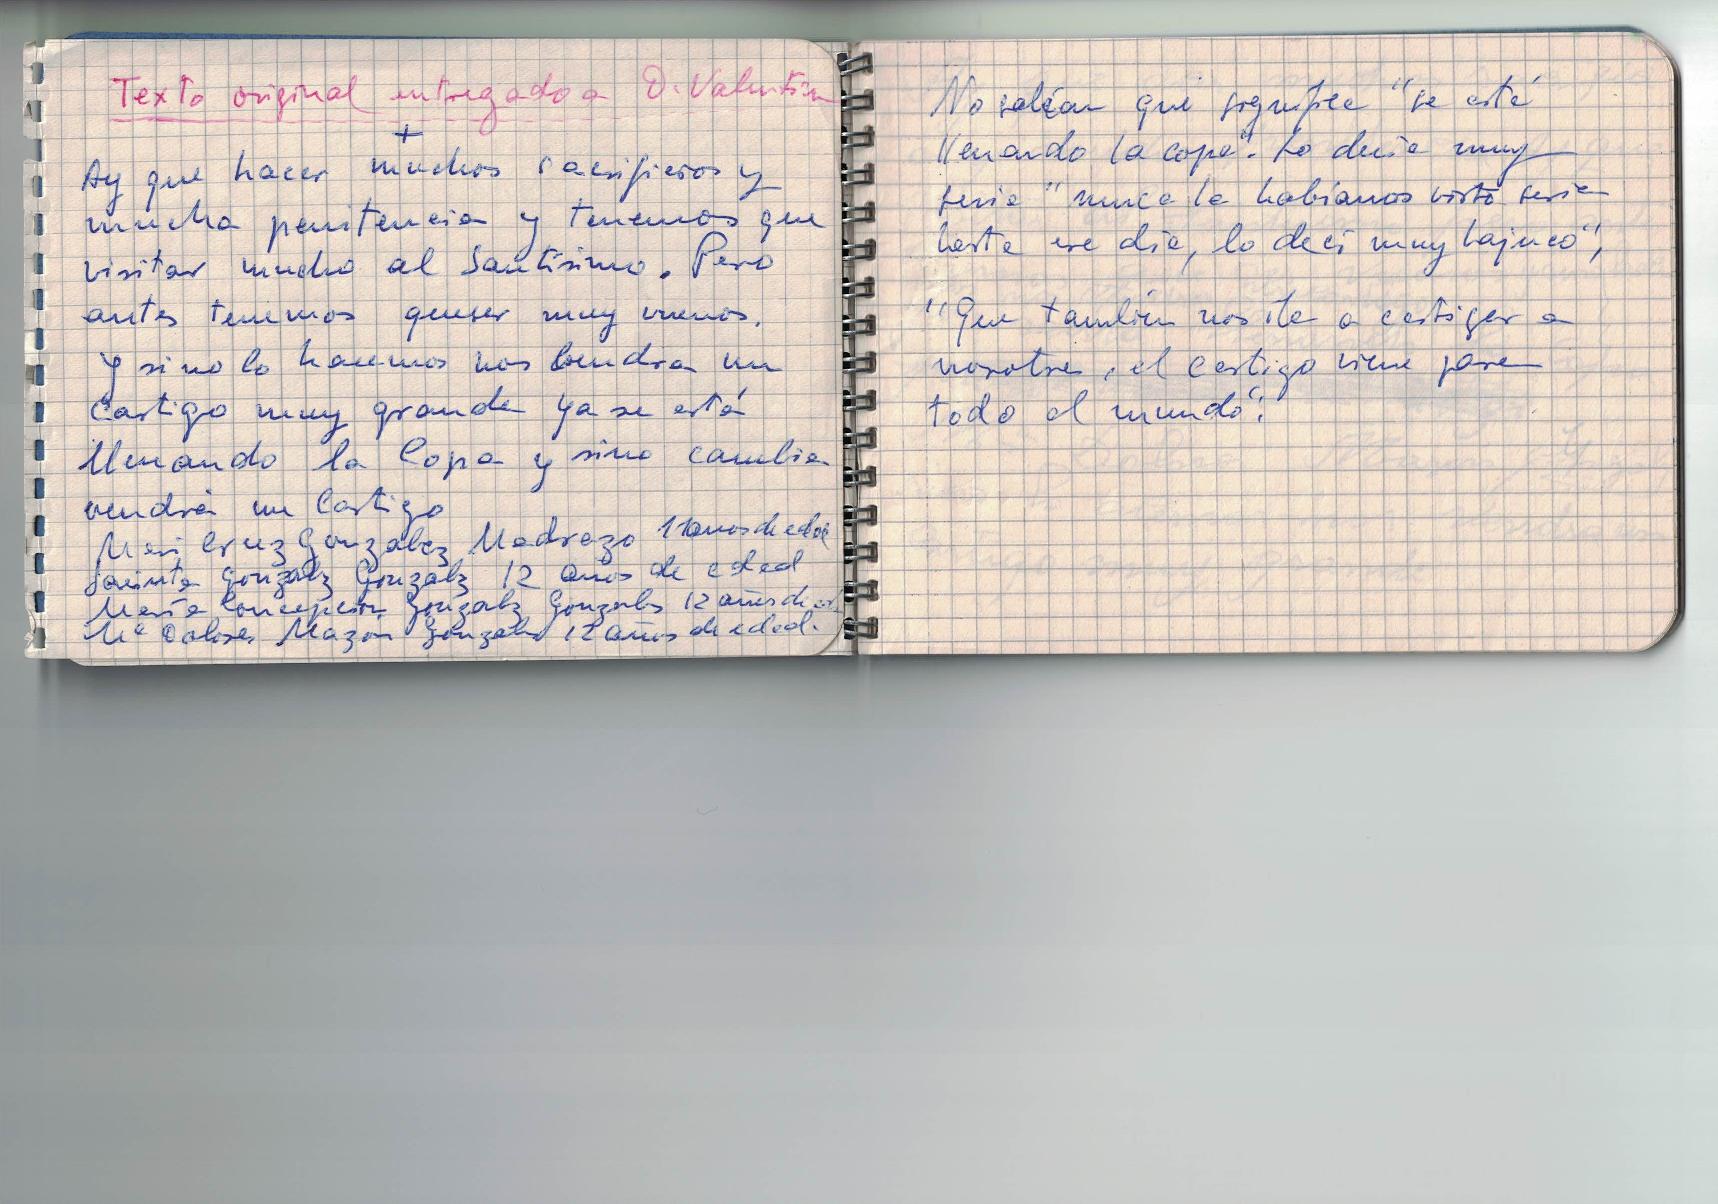 Texto original entregado a D. Valentín
+
Ay que hacer muchos sacrificios y
mucha penitencia y tenemos que
visitar mucho al Santísimo. Pero
antes tenemos queser muy vuenos.
Y sino lo hacemos nos bendra un
Castigo muy grande Ya se está
llenando la Copa y sino cambia
vendrá un Castigo
Mari Cruz Gonzalez Madrazo 11 años de edad
Jacinta Gonzalz Gonzalz 12 años de edad
María Concepción Gonzalz Gonzalez 12 años de
Mª Dolores Mazón Gonzalez 12 años de edad.
No sabían que significa "se está
llenando la copa". Lo decia muy
seria "nunca la habiamos visto seria
hasta ese dia, lo deci muy bajuco",
"Que también nos iba a castigar a
nosotras, el castigo viene para
todo el mundo".